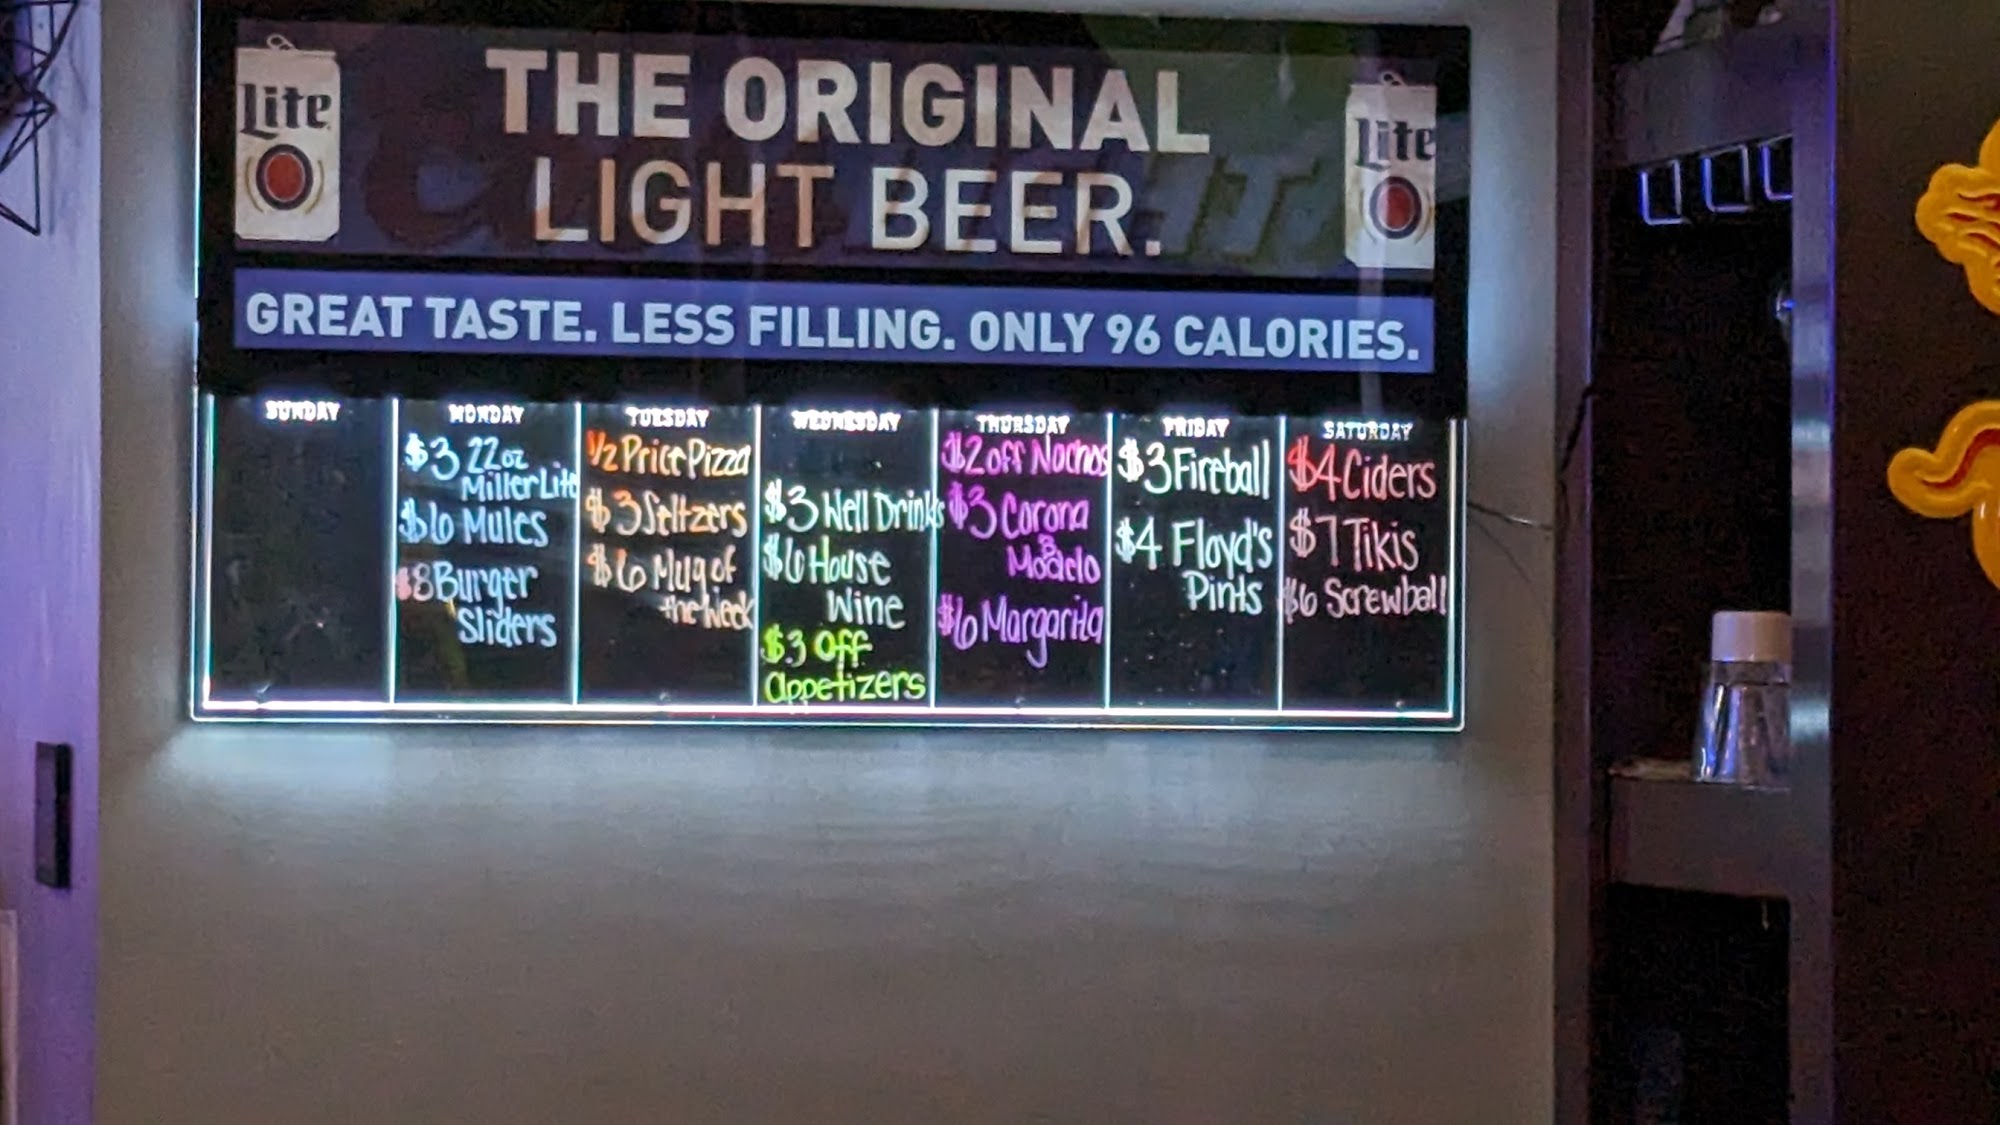 Lite
THE ORIGINAL
LIGHT BEER.
Lite
GREAT TASTE. LESS FILLING. ONLY 96 CALORIES.
SUNDAY
MONDAY
$3 22oz
Miller Lite
$6 Mules
$8 Burger
Sliders
TUESDAY
1/2 Price Pizza
$3 Seltzers
$6 Mug of
the Week
WEDNESDAY
$3 Well Drinks
$6 House
Wine
$3 Off
appetizers
THURSDAY
$2 off Nachos
$3 Corona
&
Modelo
$6 Margarita
FRIDAY
$3 Fireball
$4 Floyd's
Pints
SATURDAY
$4 Ciders
$7 Tikis
$6 Screwball